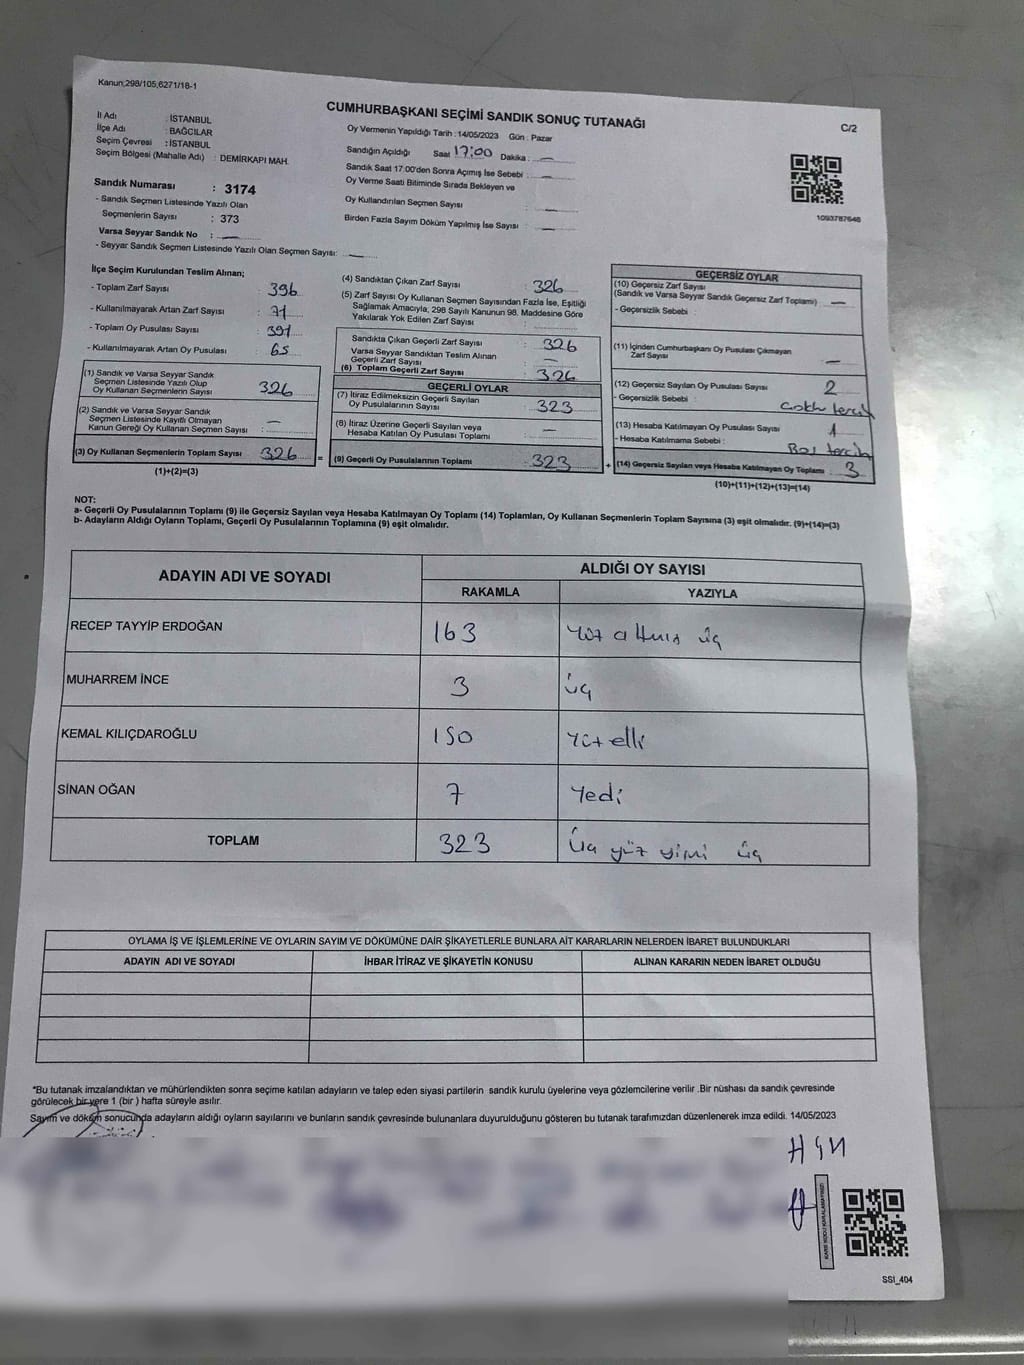 Kanun:298/105,6271/18-1
CUMHURBAŞKANI SEÇİMİ SANDIK SONUÇ TUTANAĞI
C/2
İl Adı : İSTANBUL
İlçe Adı : BAĞCILAR
Seçim Çevresi : İSTANBUL
Seçim Bölgesi (Mahalle Adı) : DEMİRKAPI MAH.
Sandık Numarası : 3174
- Sandık Seçmen Listesinde Yazılı Olan
Seçmenlerin Sayısı : 373
Varsa Seyyar Sandık No : —
- Seyyar Sandık Seçmen Listesinde Yazılı Olan Seçmen Sayısı: —
Oy Vermenin Yapıldığı Tarih : 14/05/2023 Gün : Pazar
Sandığın Açıldığı Saat 17:00 Dakika : —
Sandık Saat 17.00'den Sonra Açımış İse Sebebi : —
Oy Verme Saati Bitiminde Sırada Bekleyen ve
Oy Kullandırılan Seçmen Sayısı : —
Birden Fazla Sayım Döküm Yapılmış İse Sayısı : —
1093787648
İlçe Seçim Kurulundan Teslim Alınan;
- Toplam Zarf Sayısı : 396
- Kullanılmayarak Artan Zarf Sayısı : 71
- Toplam Oy Pusulası Sayısı : 391
- Kullanılmayarak Artan Oy Pusulası : 65
(1) Sandık ve Varsa Seyyar Sandık
Seçmen Listesinde Yazılı Olup
Oy Kullanan Seçmenlerin Sayısı : 326
(2) Sandık ve Varsa Seyyar Sandık
Seçmen Listesinde Kayıtlı Olmayan
Kanun Gereği Oy Kullanan Seçmen Sayısı : —
(3) Oy Kullanan Seçmenlerin Toplam Sayısı : 326
(1)+(2)=(3)
(4) Sandıktan Çıkan Zarf Sayısı : 326
(5) Zarf Sayısı Oy Kullanan Seçmen Sayısından Fazla İse, Eşitliği
Sağlamak Amacıyla, 298 Sayılı Kanunun 98. Maddesine Göre
Yakılarak Yok Edilen Zarf Sayısı :
Sandıkta Çıkan Geçerli Zarf Sayısı : 326
Varsa Seyyar Sandıktan Teslim Alınan
Geçerli Zarf Sayısı : —
(6) Toplam Geçerli Zarf Sayısı : 326
GEÇERLİ OYLAR
(7) İtiraz Edilmeksizin Geçerli Sayılan
Oy Pusulalarının Sayısı : 323
(8) İtiraz Üzerine Geçerli Sayılan veya
Hesaba Katılan Oy Pusulası Toplamı : —
= (9) Geçerli Oy Pusulalarının Toplamı : 323
GEÇERSİZ OYLAR
(10) Geçersiz Zarf Sayısı
(Sandık ve Varsa Seyyar Sandık Geçersiz Zarf Toplamı) : —
- Geçersizlik Sebebi :
(11) İçinden Cumhurbaşkanı Oy Pusulası Çıkmayan
Zarf Sayısı —
(12) Geçersiz Sayılan Oy Pusulası Sayısı : 2
- Geçersizlik Sebebi : tercih
(13) Hesaba Katılmayan Oy Pusulası Sayısı : 1
- Hesaba Katılmama Sebebi : Boş tercih
+ (14) Geçersiz Sayılan veya Hesaba Katılmayan Oy Toplamı : 3
(10)+(11)+(12)+(13)=(14)
NOT:
a- Geçerli Oy Pusulalarının Toplamı (9) ile Geçersiz Sayılan veya Hesaba Katılmayan Oy Toplamı (14) Toplamları, Oy Kullanan Seçmenlerin Toplam Sayısına (3) eşit olmalıdır. (9)+(14)=(3)
b- Adayların Aldığı Oyların Toplamı, Geçerli Oy Pusulalarının Toplamına (9) eşit olmalıdır.
ADAYIN ADI VE SOYADI ALDIĞI OY SAYISI
RAKAMLA YAZIYLA
RECEP TAYYİP ERDOĞAN 163 Yüz altmış üç
MUHARREM İNCE 3 üç
KEMAL KILIÇDAROĞLU 150 Yüz elli
SİNAN OĞAN 7 Yedi
TOPLAM 323 Üç yüz yimi üç
OYLAMA İŞ VE İŞLEMLERİNE VE OYLARIN SAYIM VE DÖKÜMÜNE DAİR ŞİKAYETLERLE BUNLARA AİT KARARLARIN NELERDEN İBARET BULUNDUKLARI
ADAYIN ADI VE SOYADI İHBAR İTİRAZ VE ŞİKAYETİN KONUSU ALINAN KARARIN NEDEN İBARET OLDUĞU
*Bu tutanak imzalandıktan ve mühürlendikten sonra seçime katılan adayların ve talep eden siyasi partilerin sandık kurulu üyelerine veya gözlemcilerine verilir .Bir nüshası da sandık çevresinde
görülecek bir yere 1 (bir ) hafta süreyle asılır.
Sayım ve döküm sonucunda adayların aldığı oyların sayılarını ve bunların sandık çevresinde bulunanlara duyurulduğunu gösteren bu tutanak tarafımızdan düzenlenerek imza edildi. 14/05/2023
KARE KODU KARALAMAYINIZ!
SSİ_404